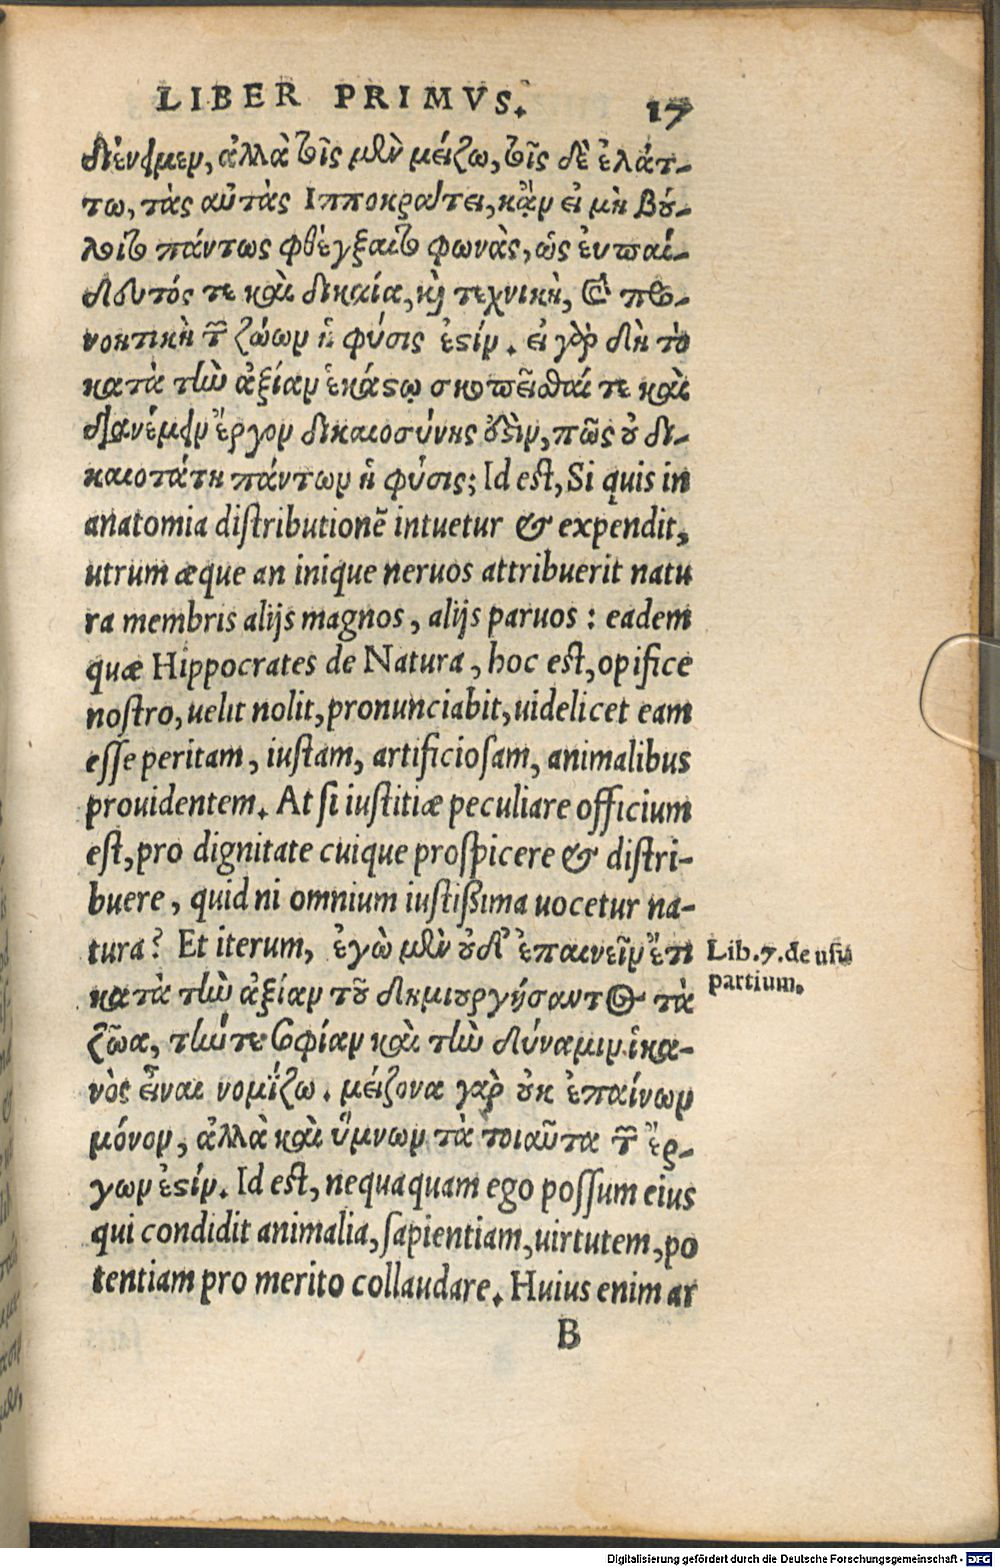 LIBER PRIMVS. 17
διένειμεν, ἀλλὰ τοῖς μὲν μείζω, τοῖς δὲ ἐλάτ-
τω, τὰς αὐτὰς Ἱπποκράτει, κᾂν εἰ μὴ βού-
λοιτο πάντως φθέγξαιτο φωνὰς, ὡς εὐπαί-
δευτός τε καὶ δικαία, καὶ τεχνικὴ, καὶ προ-
νοητικὴ τῶν ζώων ἡ φύσις ἐστίν. εἰ γὰρ δὴ τὸ
κατὰ τὴν ἀξίαν ἑκάστῳ σκοπεῖσθαί τε καὶ
διανέμειν ἔργον δικαιοσύνης ἐστὶν, πῶς οὐ δι-
καιοτάτη πάντων ἡ φύσις; Id est, Si quis in
anatomia distributionē intuetur & expendit,
utrum æque an inique neruos attribuerit natu
ra membris alijs magnos, alijs paruos : eadem
quæ Hippocrates de Natura, hoc est, opifice
nostro, uelit nolit, pronunciabit, uidelicet eam
esse peritam, iustam, artificiosam, animalibus
prouidentem. At si iustitiæ peculiare officium
est, pro dignitate cuique prospicere & distri-
buere, quid ni omnium iustißima uocetur na-
tura? Et iterum, ἐγὼ μὲν οὐδ' ἐπαινεῖν ἔτι
κατὰ τὴν ἀξίαν τοῦ δημιουργήσαντος τὰ
ζῶα, τήν τε σοφίαν καὶ τὴν δύναμιν ἱκα-
νὸς εἶναι νομίζω. μείζονα γὰρ οὐκ ἐπαίνων
μόνον, ἀλλὰ καὶ ὕμνων τὰ τοιαῦτα τῶν ἔρ-
γων ἐστίν. Id est, nequaquam ego possum eius
qui condidit animalia, sapientiam, uirtutem, po
tentiam pro merito collaudare. Huius enim ar
B
Lib. 7. de usu
partium.
Digitalisierung gefördert durch die Deutsche Forschungsgemeinschaft - DFG